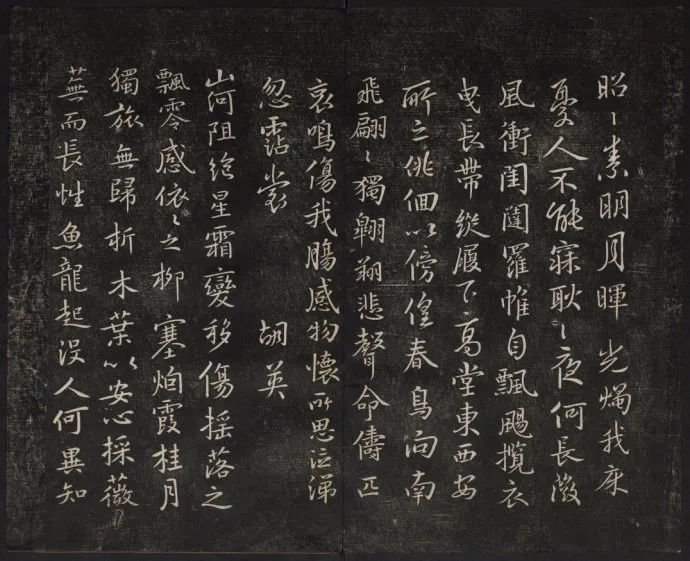 昭〻素明月暉光燭我床
憂人不能寐耿〻夜何長微
風衝閨闥羅帷自飄颺攬衣
曳長帶縱履下高堂東西安
所之徘徊以傍徨春鳥向南
飛翩〻獨翱翔悲聲命儔匹
哀鳴傷我腸感物懷所思泣涕
忽霑裳 胡英
山河阻絶星霜變移傷搖落之
飄零感依〻之柳塞烟霞桂月
獨旅無歸析木葉以安心採薇
蕪而長性魚龍起沒人何異知